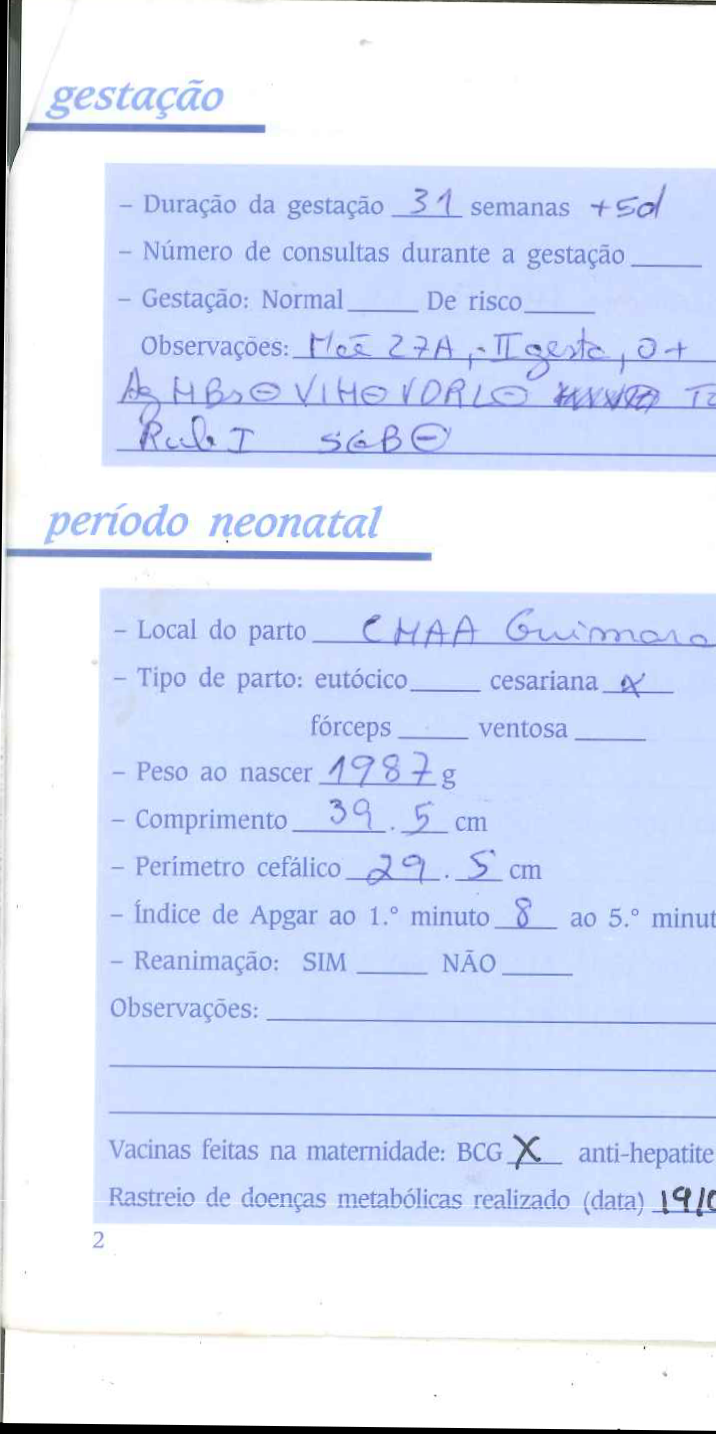 gestação
– Duração da gestação 31 semanas +5d
– Número de consultas durante a gestação
– Gestação: Normal De risco
Observações: Mãe 27A, II gesta, O+
Ag HBs ⊖ VIH ⊖ VDRL ⊖
Rub I SGB ⊖
período neonatal
– Local do parto CHAA Guimara
– Tipo de parto: eutócico cesariana x
fórceps ventosa
– Peso ao nascer 1987 g
– Comprimento 39.5 cm
– Perímetro cefálico 29.5 cm
– Índice de Apgar ao 1.º minuto 8 ao 5.º minut
– Reanimação: SIM NÃO
Observações:
Vacinas feitas na maternidade: BCG X anti-hepatite
Rastreio de doenças metabólicas realizado (data) 19/0
2